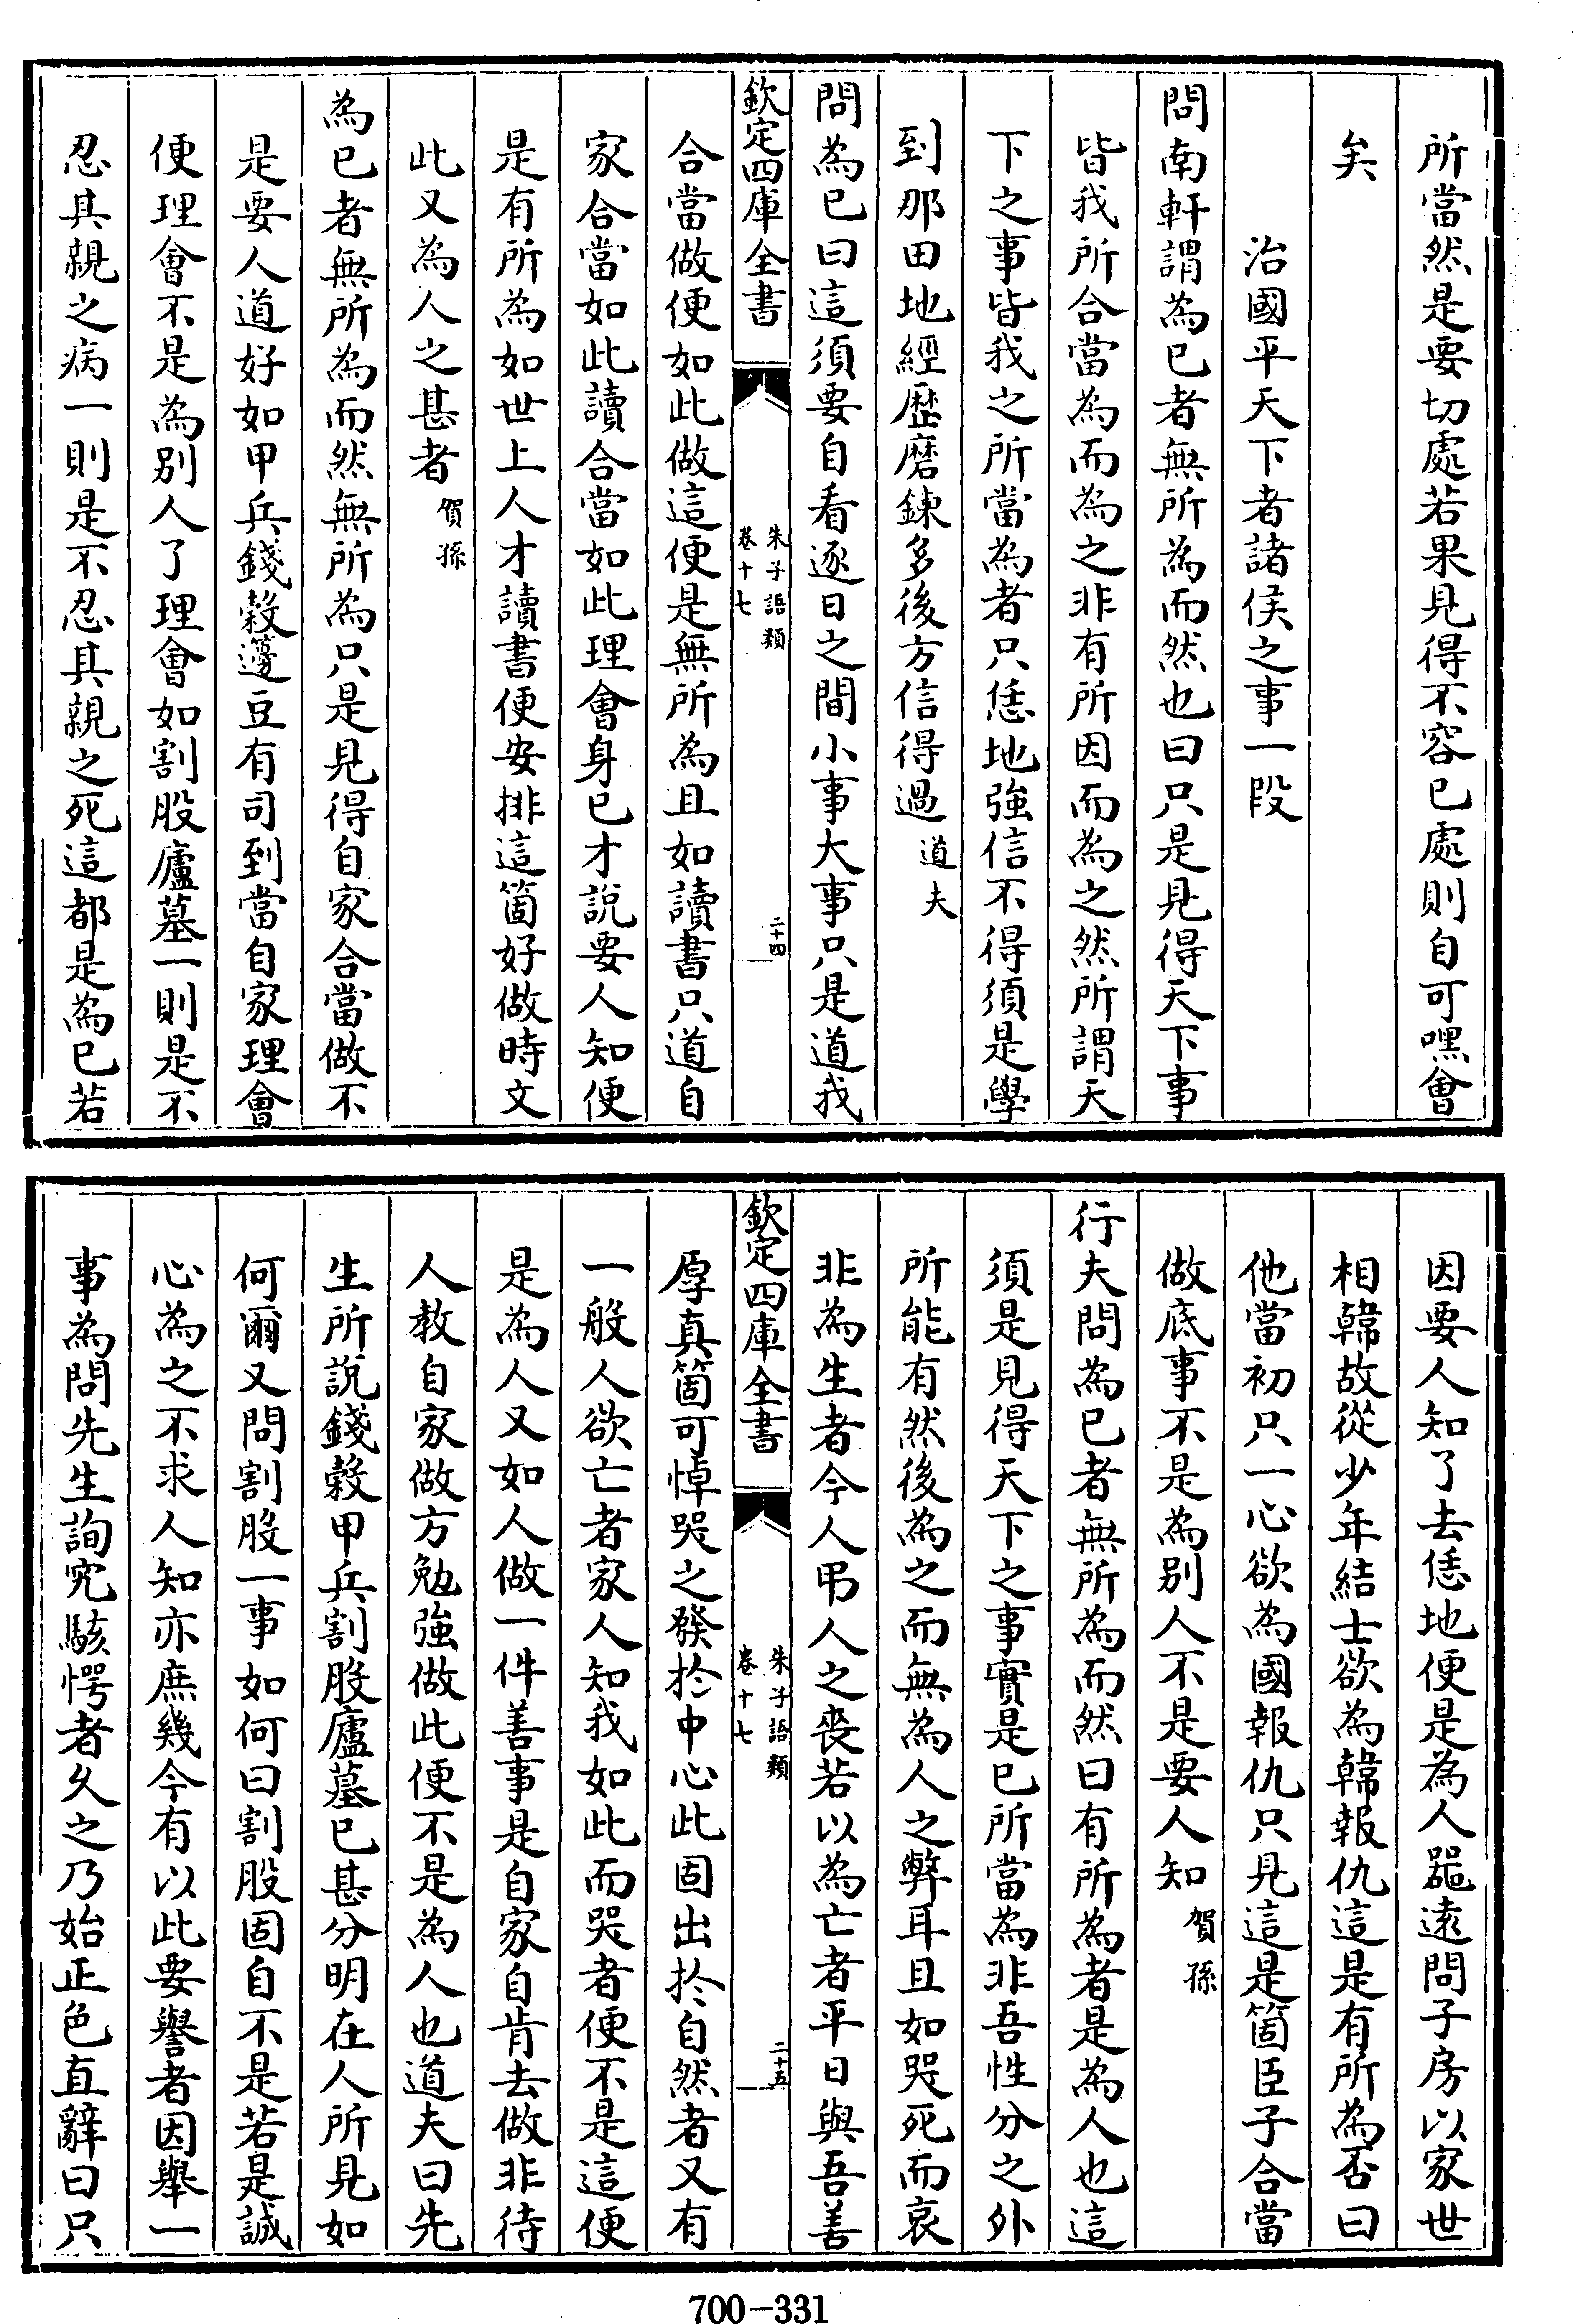 所當然是要切處若果見得不容已處則自可嘿會
矣
治國平天下者諸侯之事一段
問南軒謂為已者無所為而然也曰只是見得天下事
皆我所合當為而為之非有所因而為之然所謂天
下之事皆我之所當為者只恁地強信不得須是學
到那田地經歷磨鍊多後方信得過道夫
問為已曰這須要自看逐日之間小事大事只是道我
欽定四庫全書
朱子語類
卷十七
二十四
合當做便如此做這便是無所為且如讀書只道自
家合當如此讀合當如此理會身已才說要人知便
是有所為如世上人才讀書便安排這箇好做時文
此又為人之甚者賀孫
為已者無所為而然無所為只是見得自家合當做不
是要人道好如甲兵錢穀籩豆有司到當自家理會
便理會不是為別人了理會如割股廬墓一則是不
忍其親之病一則是不忍其親之死這都是為已若
因要人知了去恁地便是為人器遠問子房以家世
相韓故從少年結士欲為韓報仇這是有所為否曰
他當初只一心欲為國報仇只見這是箇臣子合當
做底事不是為別人不是要人知賀孫
行夫問為已者無所為而然曰有所為者是為人也這
須是見得天下之事實是已所當為非吾性分之外
所能有然後為之而無為人之弊耳且如哭死而哀
非為生者今人弔人之喪若以為亡者平日與吾善
欽定四庫全書
朱子語類
卷十七
二十五
厚真箇可悼哭之發於中心此固出於自然者又有
一般人欲亡者家人知我如此而哭者便不是這便
是為人又如人做一件善事是自家自肯去做非待
人教自家做方勉強做此便不是為人也道夫曰先
生所說錢穀甲兵割股廬墓已甚分明在人所見如
何爾又問割股一事如何曰割股固自不是若是誠
心為之不求人知亦庶幾今有以此要譽者因舉一
事為問先生詢究駭愕者久之乃始正色直辭曰只
700-331